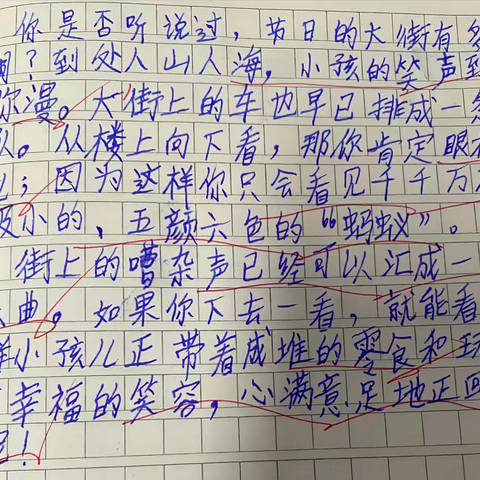 你是否听说过，节日的大街有多
？到处人山人海，小孩的笑声到
弥漫。大街上的车也早已排成一条
队。从楼上向下看，那你肯定眼
；因为这样你只会看见千千万
极小的、五颜六色的“蚂蚁”。
街上的嘈杂声已经可以汇成一
曲。如果你下去一看，就能看
小孩儿正带着成堆的零食和玩
幸福的笑容，心满意足地正回
呢！